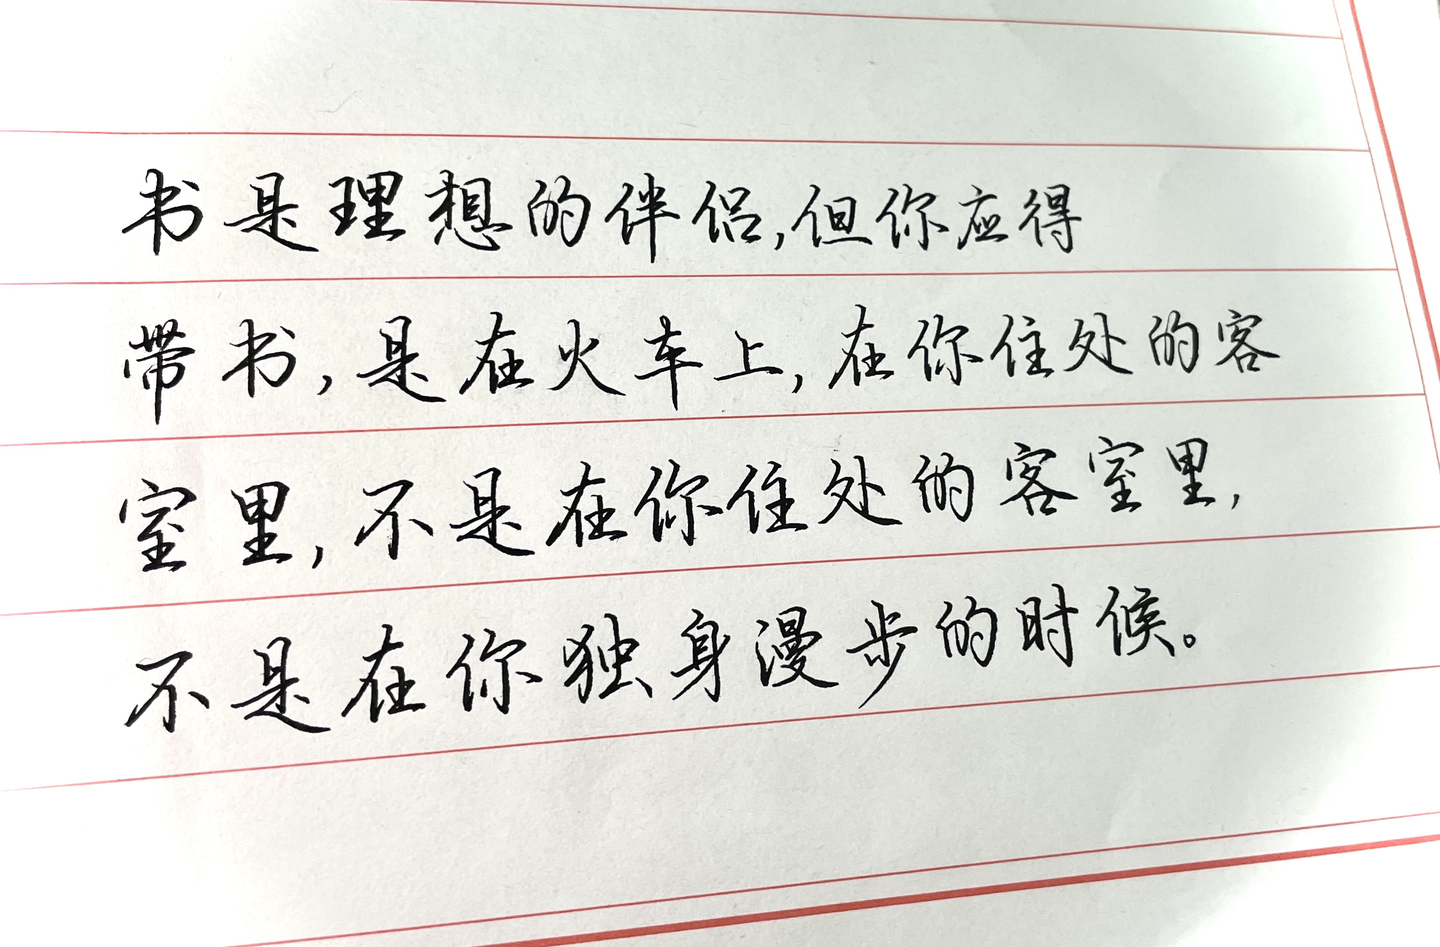 书是理想的伴侣,但你应得
带书,是在火车上,在你住处的客
室里,不是在你住处的客室里,
不是在你独身漫步的时候。